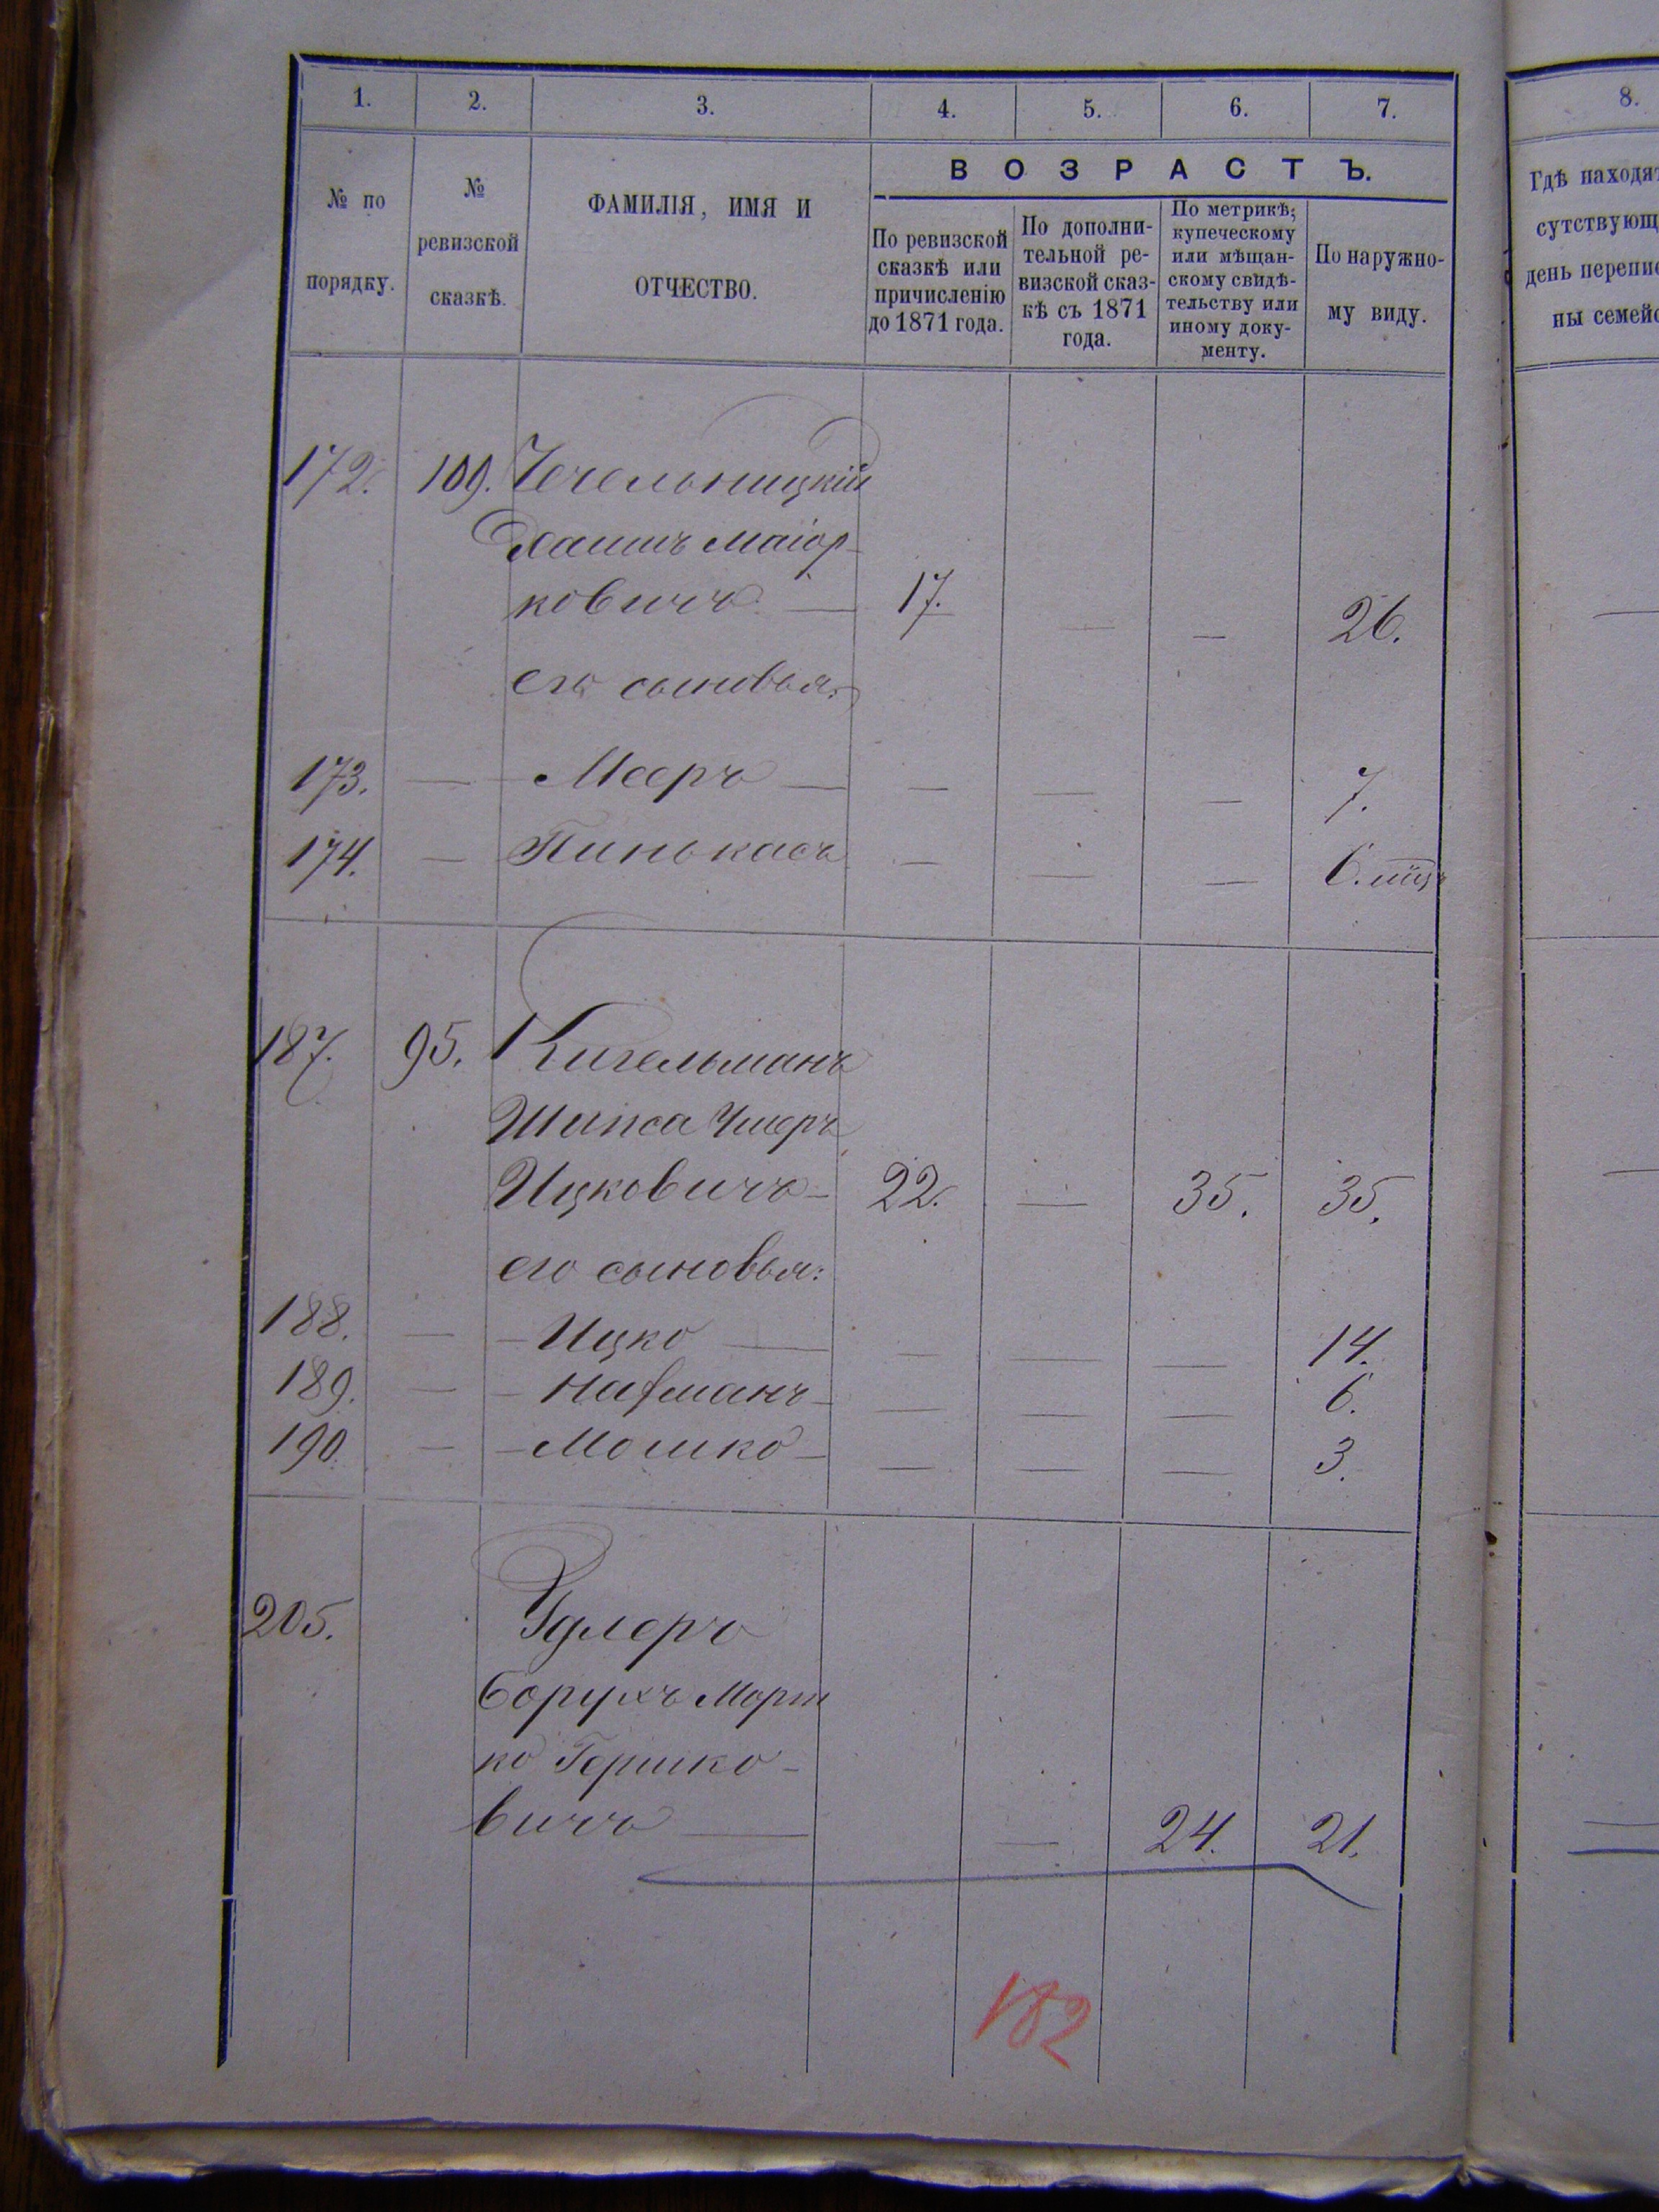 1. 2. 3. 4. 5. 6. 7. 8.
№ по порядку.
№ ревизской сказкѣ.
ФАМИЛІЯ, ИМЯ И ОТЧЕСТВО.
ВОЗРАСТЪ.
По ревизской сказкѣ или причисленію до 1871 года.
По дополнительной ревизской сказкѣ съ 1871 года.
По метрикѣ, купеческому или мѣщанскому свидѣтельству или иному документу.
По наружному виду.
Гдѣ находят
сутствующ
день перепис
ны семейс
172. 109. Чечельницкій
Хаимъ Маіор-
ковичъ — 17. — — 26.
его сыновья:
173. — Мееръ — — — — 7.
174. — Пинькасъ — — — 6. мц
187. 95. Кигельманъ
Шипса Умеръ
Ицковичъ — 22. — 35. 35.
его сыновья:
188. — Ицко — — — — 14.
189. — Нахманъ — — — — 6.
190. — Мошко — — — — 3.
205. Удлеръ
Борухъ Морт
ко Гершко-
вичъ — — 24. 21.
182